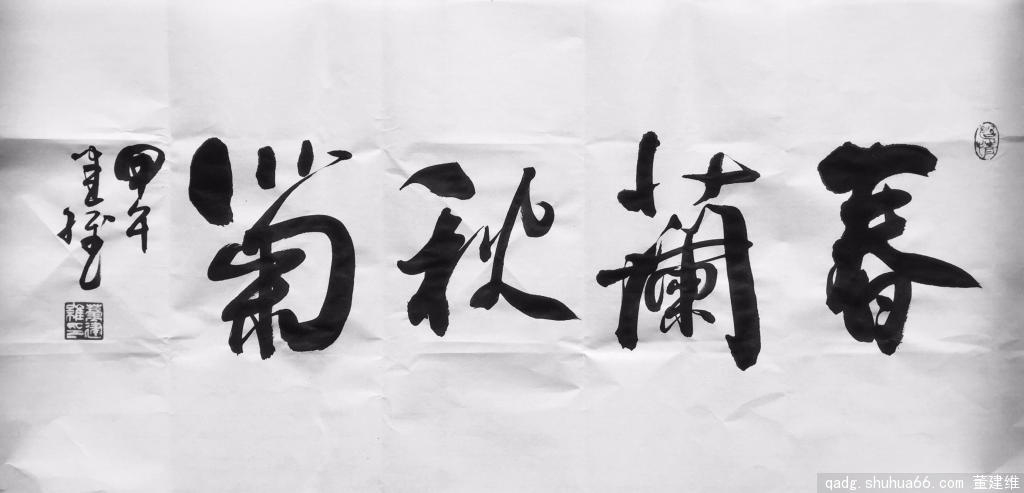 春蘭秋菊
甲午
建維
董建維印
qadg.shuhua66.com 董建维